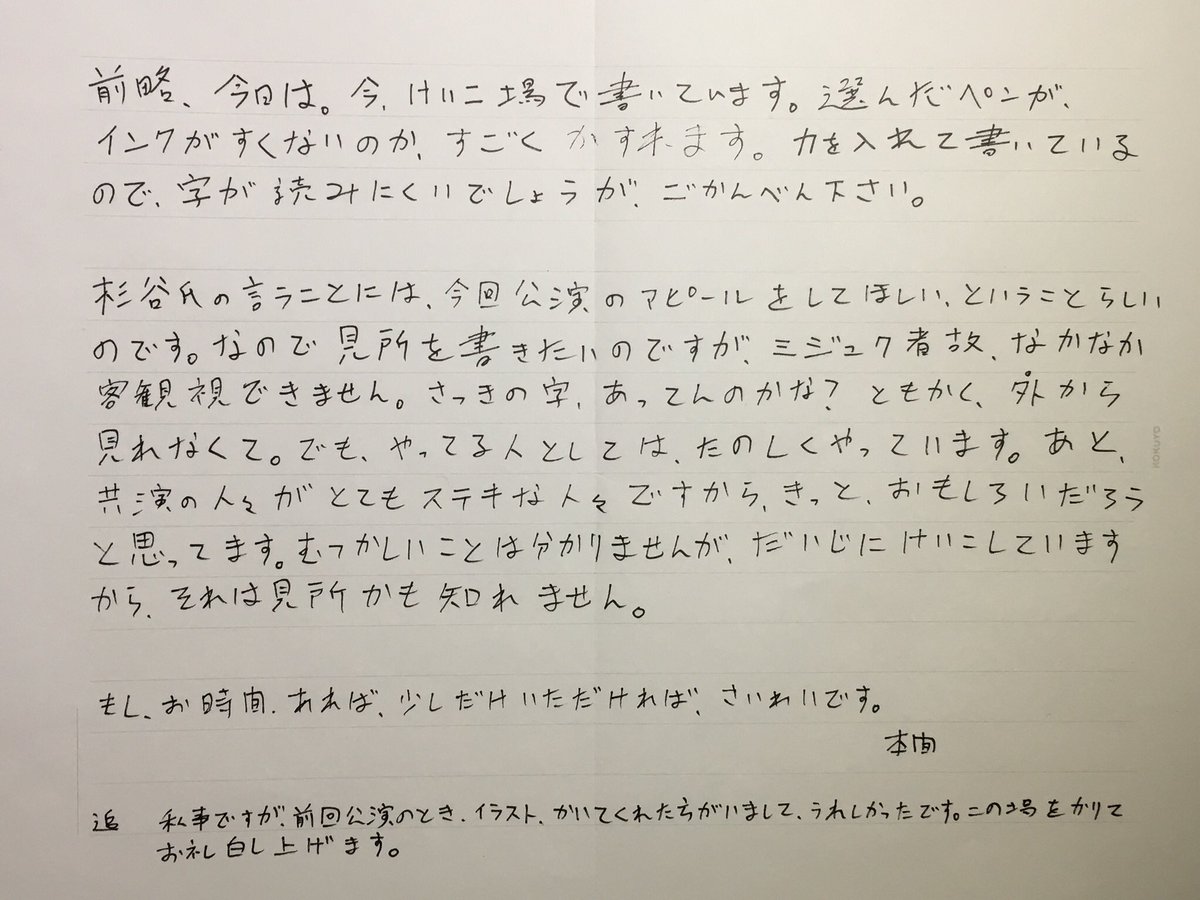 前略、今日は。今、けいこ場で書いています。選んだペンが、
インクがすくないのか、すごくかすれます。力を入れて書いている
ので、字が読みにくいでしょうが、ごかんべん下さい。
杉谷氏の言うことには、今回公演のアピールをしてほしい、ということらしい
のです。なので見所を書きたいのですが、ミジュク者故、なかなか
客観視できません。さっきの字、あってんのかな?ともかく、外から
見れなくて。でも、やってる人としては、たのしくやっています。あと、
共演の人々がとてもステキな人々ですから、きっと、おもしろいだろう
と思ってます。むつかしいことは分かりませんが、だいじにけいこしています
から、それは見所かも知れません。
もし、お時間、あれば、少しだけいただければ、さいわいです。
本間
追 私事ですが、前回公演のとき、イラスト、かいてくれた方がいまして、うれしかったです。この場をかりて
お礼申し上げます。
KOKUYO